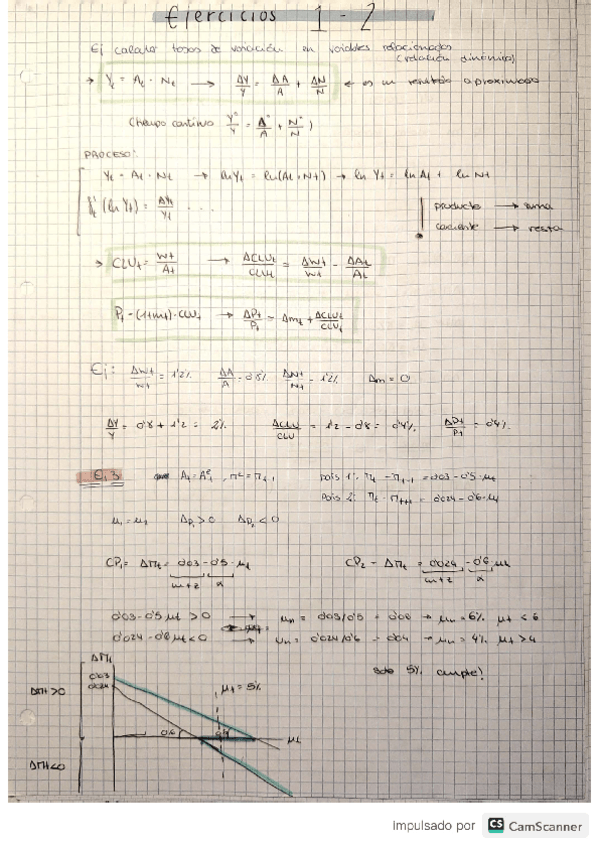 Ejercicios 1-2
Ej calcular tasas de variación en variables relacionadas
(relación dinámica)
→ Yt = At · Nt → ΔY/Y = ΔA/A + ΔN/N ← es un resultado aproximado
(tiempo continuo Y°/Y = A°/A + N°/N )
PROCESO:
Yt = At · Nt → ln Yt = ln(At·Nt) → ln Yt = ln At + ln Nt
(ln Yt) = ΔYt/Yt ...
! producto → suma
cociente → resta
→ CLUt = Wt/At → ΔCLUt/CLUt = ΔWt/Wt - ΔAt/At
Pt = (1+mt)·CLUt → ΔPt/Pt = Δmt + ΔCLUt/CLUt
Ej: ΔWt/Wt = 1'2% ΔA/A = 0'8% ΔNt/Nt = 1'2% Δm = 0
ΔY/Y = 0'8 + 1'2 = 2% ΔCLU/CLU = 1'2 - 0'8 = 0'4% ΔPt/Pt = 0'4%
Ej 3 At = Aet , πe = πt-1 País 1: πt - πt-1 = 0'03 - 0'5·μt
País 2: πt - πt-1 = 0'024 - 0'6·μt
CP1 = Δπt = 0'03 - 0'5·μt CP2 = Δπt = 0'024 - 0'6·μt
m+z α m+z α
0'03 - 0'5 μt > 0 → μn = 0'03/0'5 = 0'06 → μn = 6% μt < 6
0'024 - 0'6 μt < 0 → μn = 0'024/0'6 = 0'04 → μn = 4% μt > 4
solo 5% cumple!
Δπt
0'03
0'024
Δπt > 0
μt = 5%
μt
Δπt < 0
Impulsado por CS CamScanner